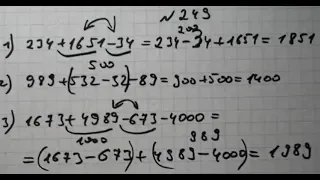 № 249
1) 234+1651-34=234-34+1651=1851
200
500
2) 989+(532-32)-89=900+500=1400
3) 1673+4989-673-4000=
1000
989
=(1673-673)+(4989-4000)=1989